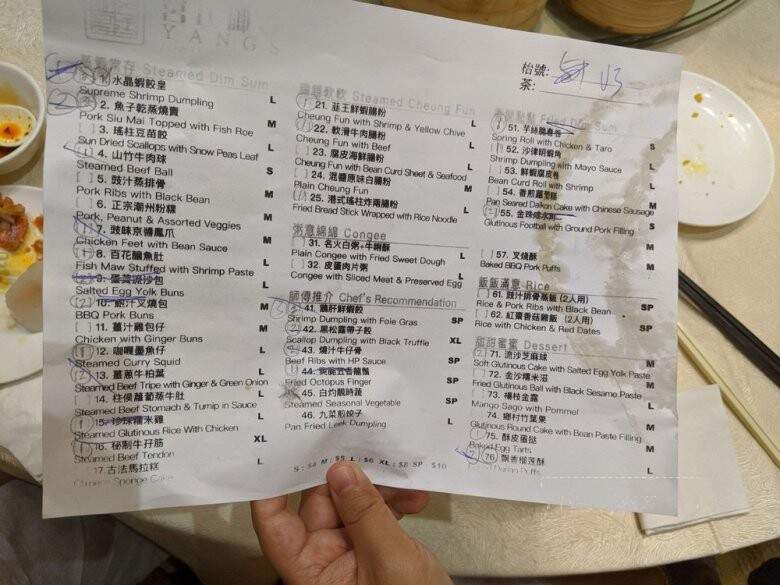 YANG'S
枱號:
茶:
蒸籠常存 Steamed Dim Sum
1. 水晶蝦餃皇
Supreme Shrimp Dumpling L
2. 魚子乾蒸燒賣
Pork Siu Mai Topped with Fish Roe M
3. 瑤柱豆苗餃
Sun Dried Scallops with Snow Peas Leaf L
4. 山竹牛肉球
Steamed Beef Ball S
5. 豉汁蒸排骨
Pork Ribs with Black Bean M
6. 正宗潮州粉粿
Pork, Peanut & Assorted Veggies M
7. 豉味京醬鳳爪
Chicken Feet with Bean Sauce M
8. 百花釀魚肚
Fish Maw Stuffed with Shrimp Paste L
9. 蛋黃流沙包
Salted Egg Yolk Buns L
10. 鮑汁叉燒包
BBQ Pork Buns M
11. 薑汁雞包仔
Chicken with Ginger Buns M
12. 咖喱墨魚仔
Steamed Curry Squid L
13. 薑蔥牛柏葉
Steamed Beef Tripe with Ginger & Green Onion L
14. 柱侯蘿蔔蒸牛肚
Steamed Beef Stomach & Turnip in Sauce L
15. 珍珠糯米雞
Steamed Glutinous Rice With Chicken L
16. 秘制牛孖筋
Steamed Beef Tendon XL
17. 古法馬拉糕
Chinese Sponge Cake L
Steamed Cheung Fun
21. 韮王鮮蝦腸粉
Cheung Fun with Shrimp & Yellow Chive L
22. 軟滑牛肉腸粉
Cheung Fun with Beef L
23. 腐皮海鮮腸粉
Cheung Fun with Bean Curd Sheet & Seafood L
24. 混醬原味白腸粉
Plain Cheung Fun M
25. 港式瑤柱炸兩腸粉
Fried Bread Stick Wrapped with Rice Noodle L
粥意綿綿 Congee
31. 名火白粥+牛脷酥
Plain Congee with Fried Sweet Dough L
32. 皮蛋肉片粥
Congee with Sliced Meat & Preserved Egg L
師傅推介 Chef's Recommendation
41. 鵝肝鮮蝦餃
Shrimp Dumpling with Foie Gras SP
42. 黑松露帶子餃
Scallop Dumpling with Black Truffle XL
43. 燒汁牛仔骨
Beef Ribs with HP Sauce SP
44.
Fried Octopus Finger SP
45. 白灼靚時蔬
Steamed Seasonal Vegetable SP
46. 九菜煎餃子
Pan Fried Leek Dumpling L
S: $4 M: $5 L: $6 XL: $8 SP $10
Fried Dim Sum
51. 芋絲雞春卷
Soring Roll with Chicken & Taro S
52. 沙律明蝦角
Shrimp Dumpling with Mayo Sauce L
53. 鮮蝦腐皮卷
Bean Curd Roll with Shrimp L
54. 香煎蘿蔔糕
Pan Seared Daikon Cake with Chinese Sausage M
55. 金珠咸水角
Glutinous Football with Ground Pork Filling S
57. 叉燒酥
Baked BBQ Pork Puffs M
飯飯滿意 Rice
61. 豉汁排骨蒸飯 (2人用)
Rice & Pork Ribs with Black Bean SP
62. 紅棗香菇雞飯 (2人用)
Rice with Chicken & Red Dates SP
甜甜蜜蜜 Dessert
71. 流沙芝麻球
Soft Glutinous Cake with Salted Egg Yolk Paste M
72. 金沙糯米滋
Fried Glutinous Ball with Black Sesame Paste M
73. 楊枝金露
Mungo Sago with Pommel L
74. 鄉村竹葉果
Glutinous Round Cake with Bean Paste Filling M
75. 酥皮蛋撻
Baked Egg Tarts M
76. 飄香榴蓮酥
Durian Puffs